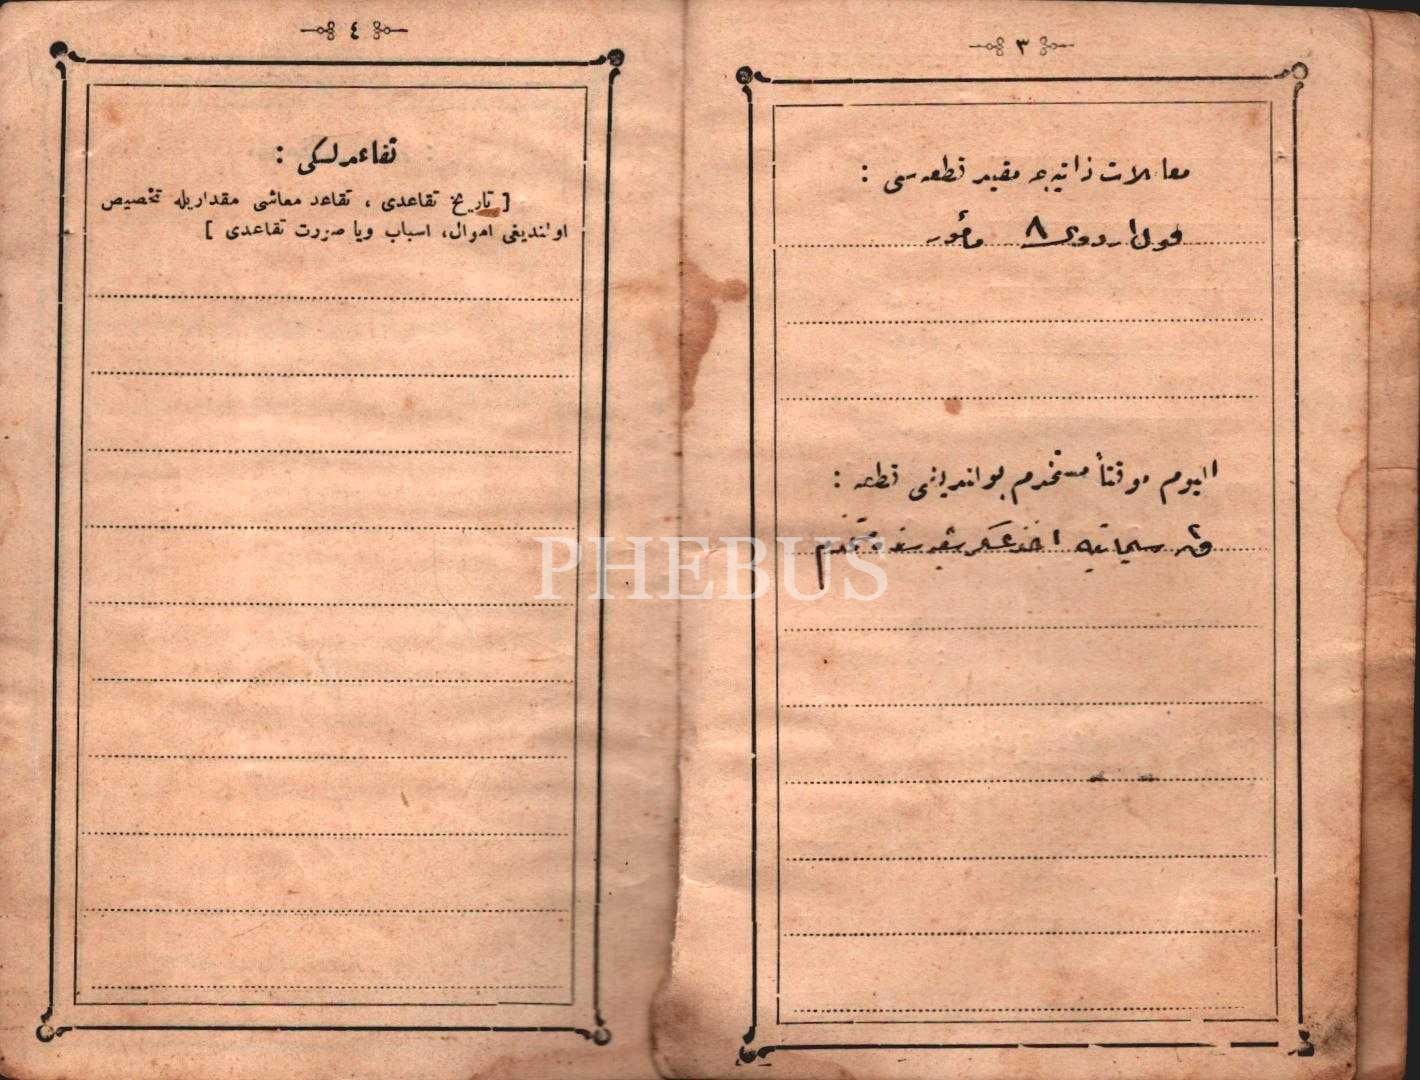 ٣
معاملات ذاتیه‌جه مقید قطعه‌سی :
قول اردوی ٨ مأمور
الیوم موقتاً مستخدم بولندیغی قطعه :
اخذ عسکر
٤
تقاعدلکی :
[ تاریخ تقاعدی ، تقاعد معاشی مقداریله تخصیص
اولندیغی اموال، اسباب ویا صورت تقاعدی ]
PHEBUS